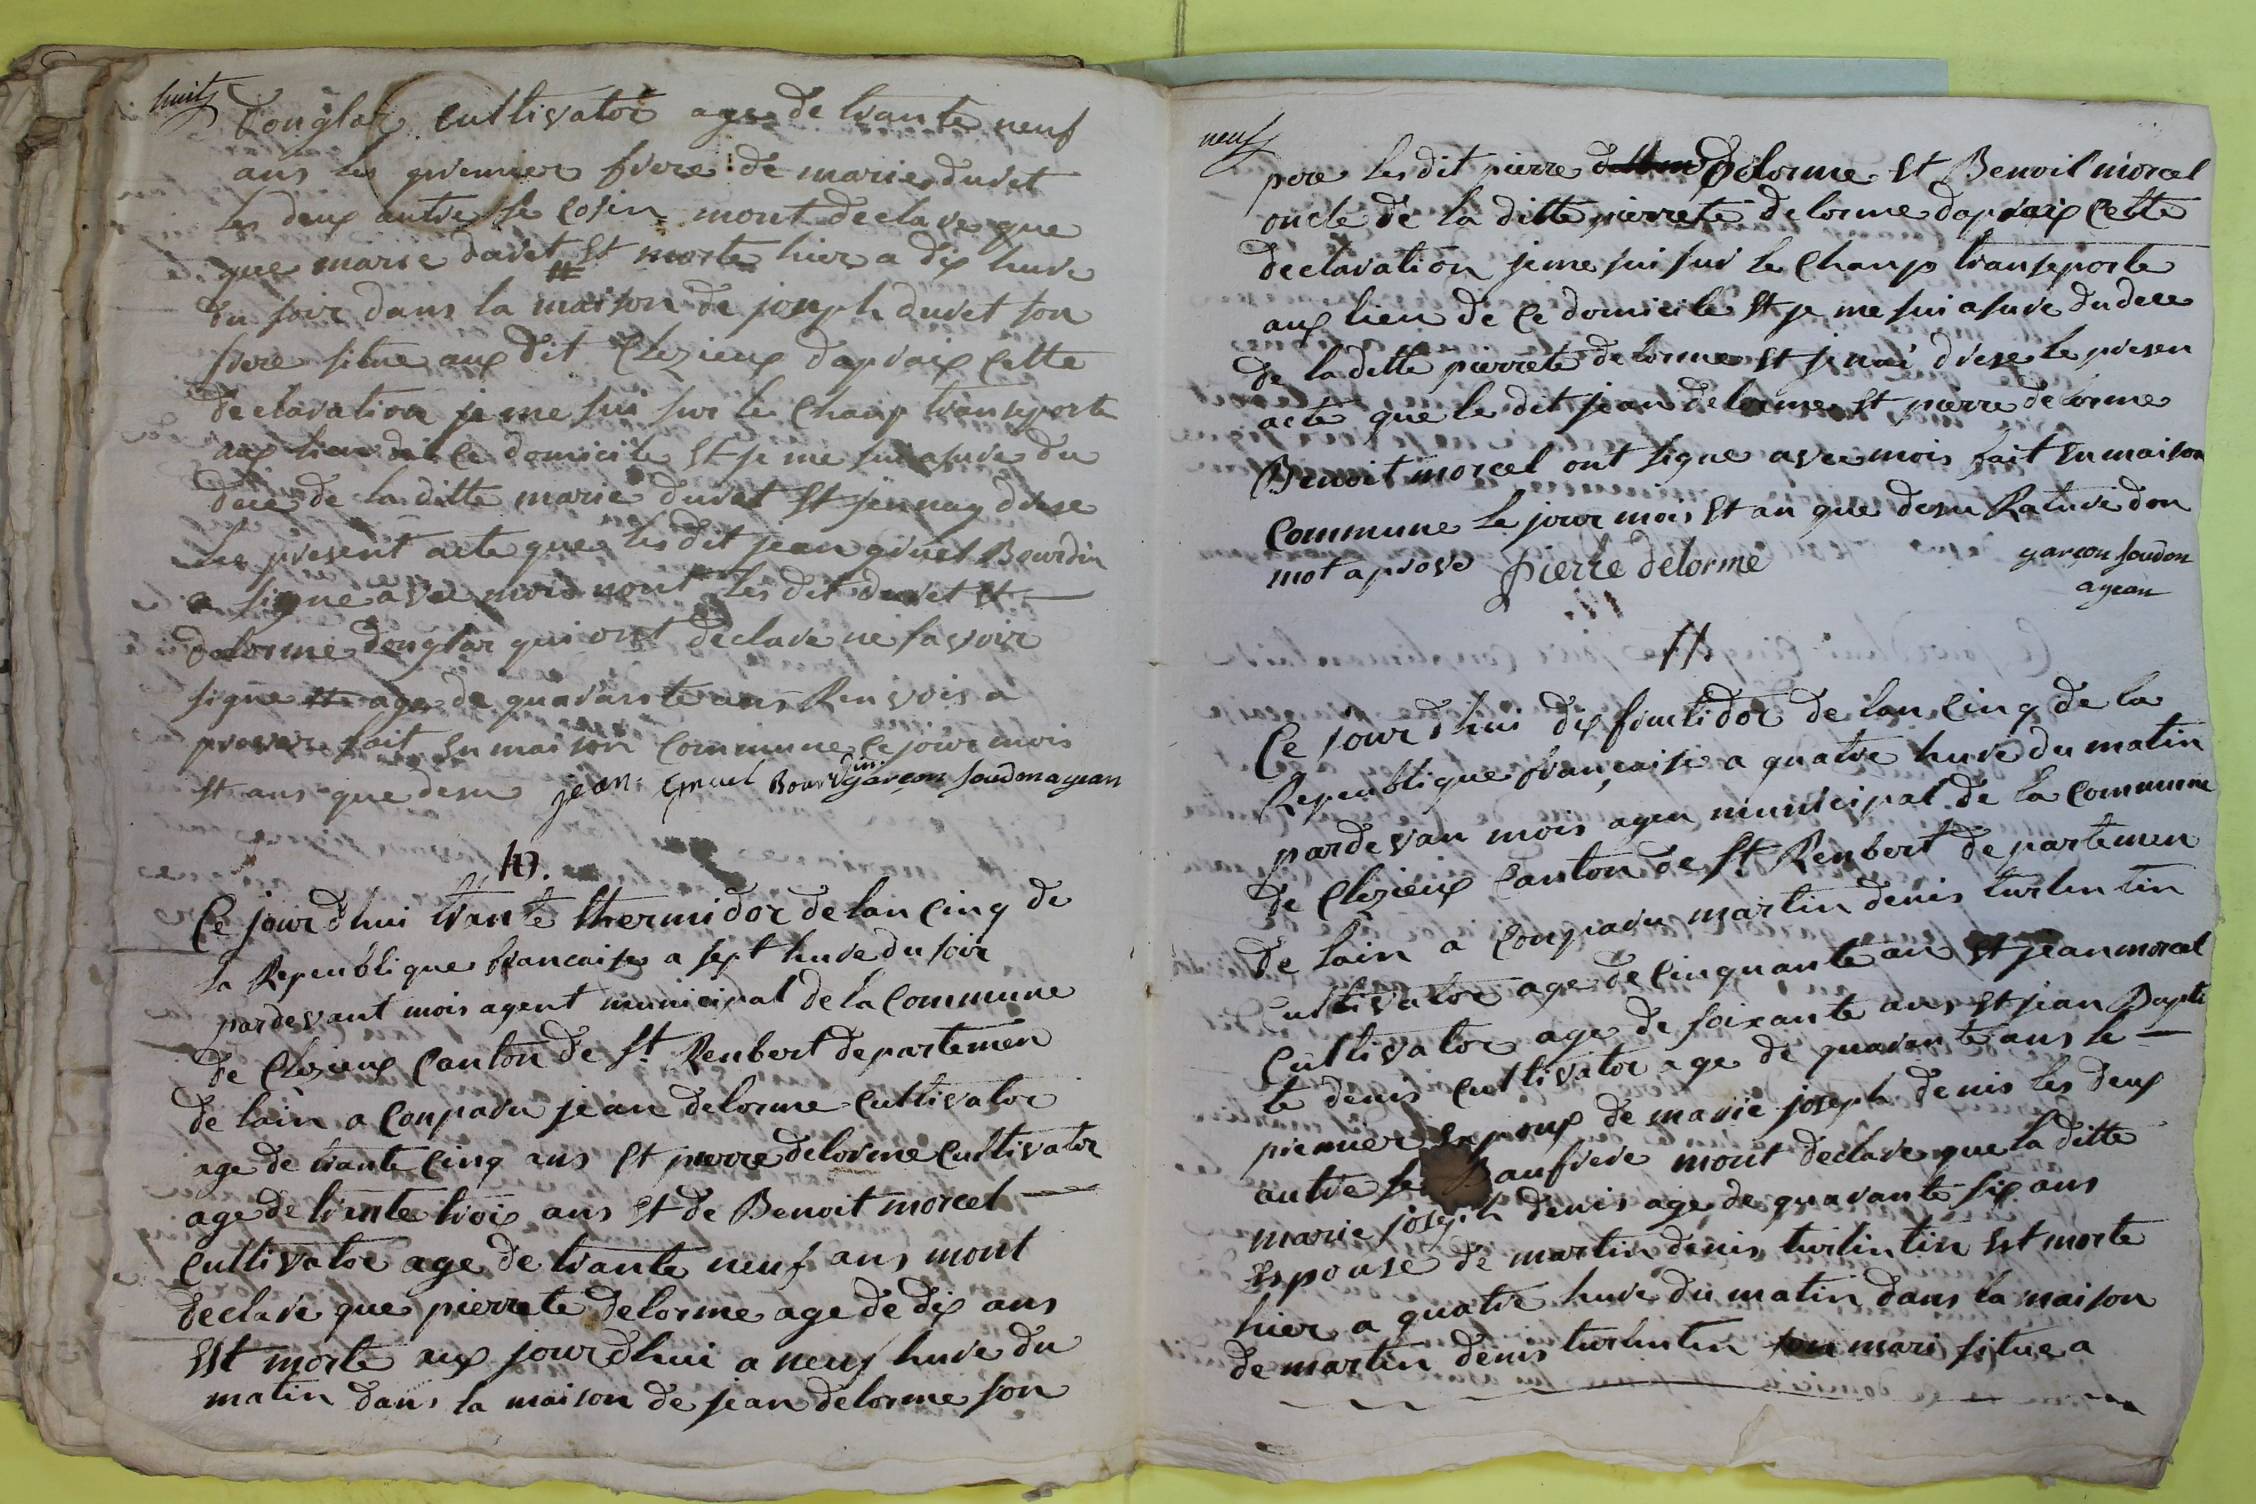 huit
Donglar cultivator age de trante neuf
ans les premier frere de marie duvet
les deux autre le cosin mont declare que
que marie duvet est morte hier a dix hure
du soir dans la maison de joseph duvet son
frere situe aux dit Clezieux dapraix cette
declaration je me sui sur le champ transeporte
aux lieu de ce domicile et je me sui asure du
dece de la ditte marie duvet et jennay drese
les present acte que les dit jean gruel Bourdin
a signe avec mois nont les dit duvet et
delorme donglar qui ont declare ne savoir
signe age de quarante ans Renvois a
prover fait en maison commune ce jour mois
et ans que desu jean gruel Bourdin garçon soudonagean
10.
Ce jourdhui trante thermidor de lan cinq de
la Republique francaise a sept hure du soir
pardevant mois agent municipal de la commune
de Clezieux canton de St. Renbert departemen
de lain a conparu jean delorme cultivator
age de trante cinq ans et pierre delorme cultivator
age de trente troix ans et de Benoit morcel
cultivator age de trante neuf ans mont
declare que pierrete delorme age de dix ans
est morte aux jourdhui a neuf hure du
matin dans la maison de jean delorme son
neuf
pere les dit pierre delorme et Benoit morcel
oncle de la ditte pierrete delorme dapraix cette
declaration je me sui sur le champ transeporte
aux lieu de ce domicile et je me sui asure du dece
de la ditte pierrete delorme et je nai drese le presen
acte que le dit jean delorme et pierre delorme
Benoit morcel ont signe avec mois fait en maison
commune le jour mois et an que desu Rature don
mot aprove pierre delorme garçon soudon
agean
11.
Ce jourdhui dix fructidor de lan cinq de la
Republique française a quatre hure du matin
pardevan mois agen municipal de la commune
de Clezieux canton de St. Renbert departemen
de lain a conparu martin denis turlintin
cultivator age de cinquante an et jean morcel
cultivator age de soixante ans et jean Bapti
te denis cultivator age de quarante ans le
premier epoux de marie joseph denis les deux
autre le Baufrere mont declare que la ditte
marie joseph denis age de quarante six ans
espouse de martin denis turlintin est morte
hier a quatre hure du matin dans la maison
de martin denis turlintin son mari situe a